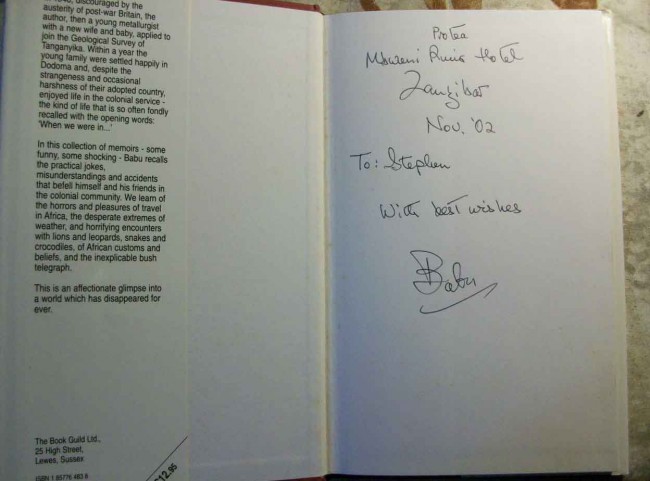 discouraged by the
austerity of post-war Britain, the
author, then a young metallurgist
with a new wife and baby, applied to
join the Geological Survey of
Tanganyika. Within a year the
young family were settled happily in
Dodoma and, despite the
strangeness and occasional
harshness of their adopted country,
enjoyed life in the colonial service -
the kind of life that is so often fondly
recalled with the opening words:
'When we were in...'
In this collection of memoirs - some
funny, some shocking - Babu recalls
the practical jokes,
misunderstandings and accidents
that befell himself and his friends in
the colonial community. We learn of
the horrors and pleasures of travel
in Africa, the desperate extremes of
weather, and horrifying encounters
with lions and leopards, snakes and
crocodiles, of African customs and
beliefs, and the inexplicable bush
telegraph.
This is an affectionate glimpse into
a world which has disappeared for
ever.
The Book Guild Ltd.,
25 High Street,
Lewes, Sussex
ISBN 1 85776 483 6
£12.95
Protea
Mbweni Ruins Hotel
Zanzibar
Nov. '02
To: Stephen
With best wishes
Babu